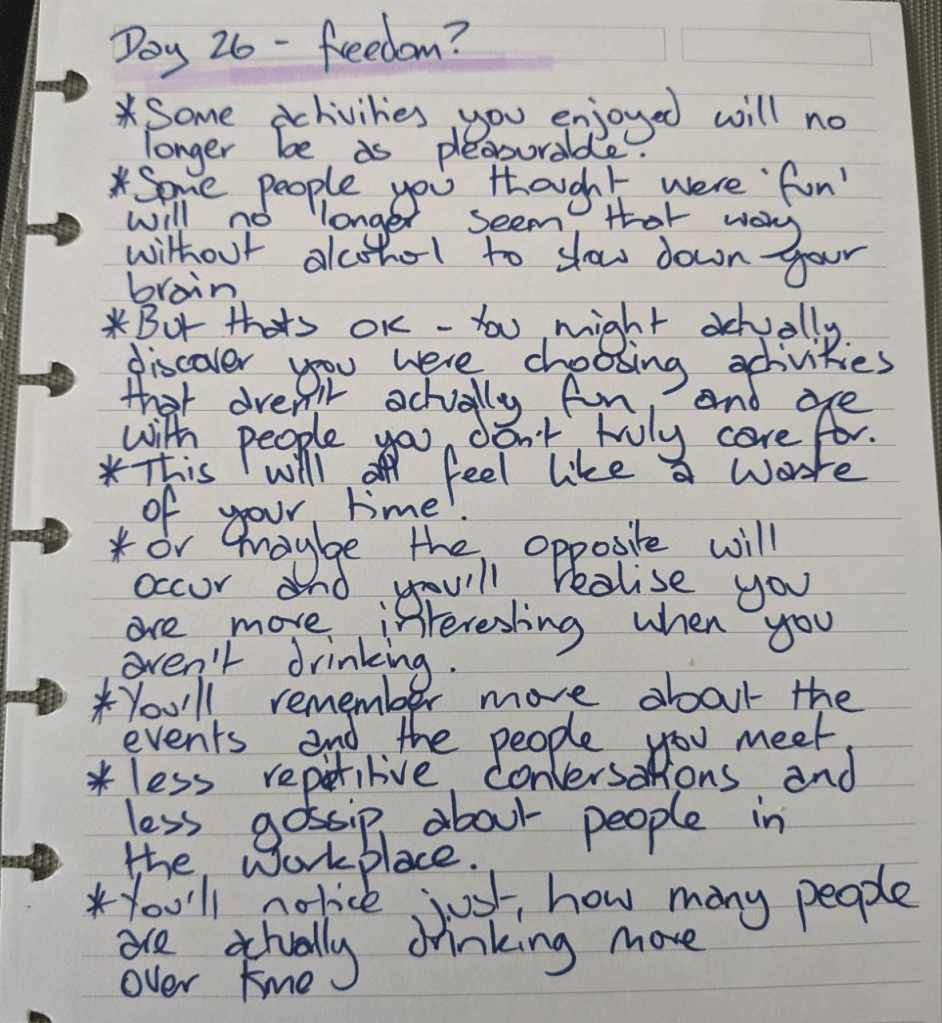 Day 26 - freedom?
*Some activities you enjoyed will no
longer be as pleasurable.
*Some people you thought were 'fun'
will no longer seem that way
without alcohol to slow down your
brain
*But thats OK - You might actually
discover you were choosing activities
that aren't actually fun, and are
with people you don't truly care for.
*This will all feel like a waste
of your time.
*or maybe the opposite will
occur and you'll realise you
are more interesting when you
aren't drinking.
*You'll remember more about the
events and the people you meet,
*less repititive conversations and
less gossip about people in
the workplace.
*You'll notice just, how many people
are actually drinking more
over time